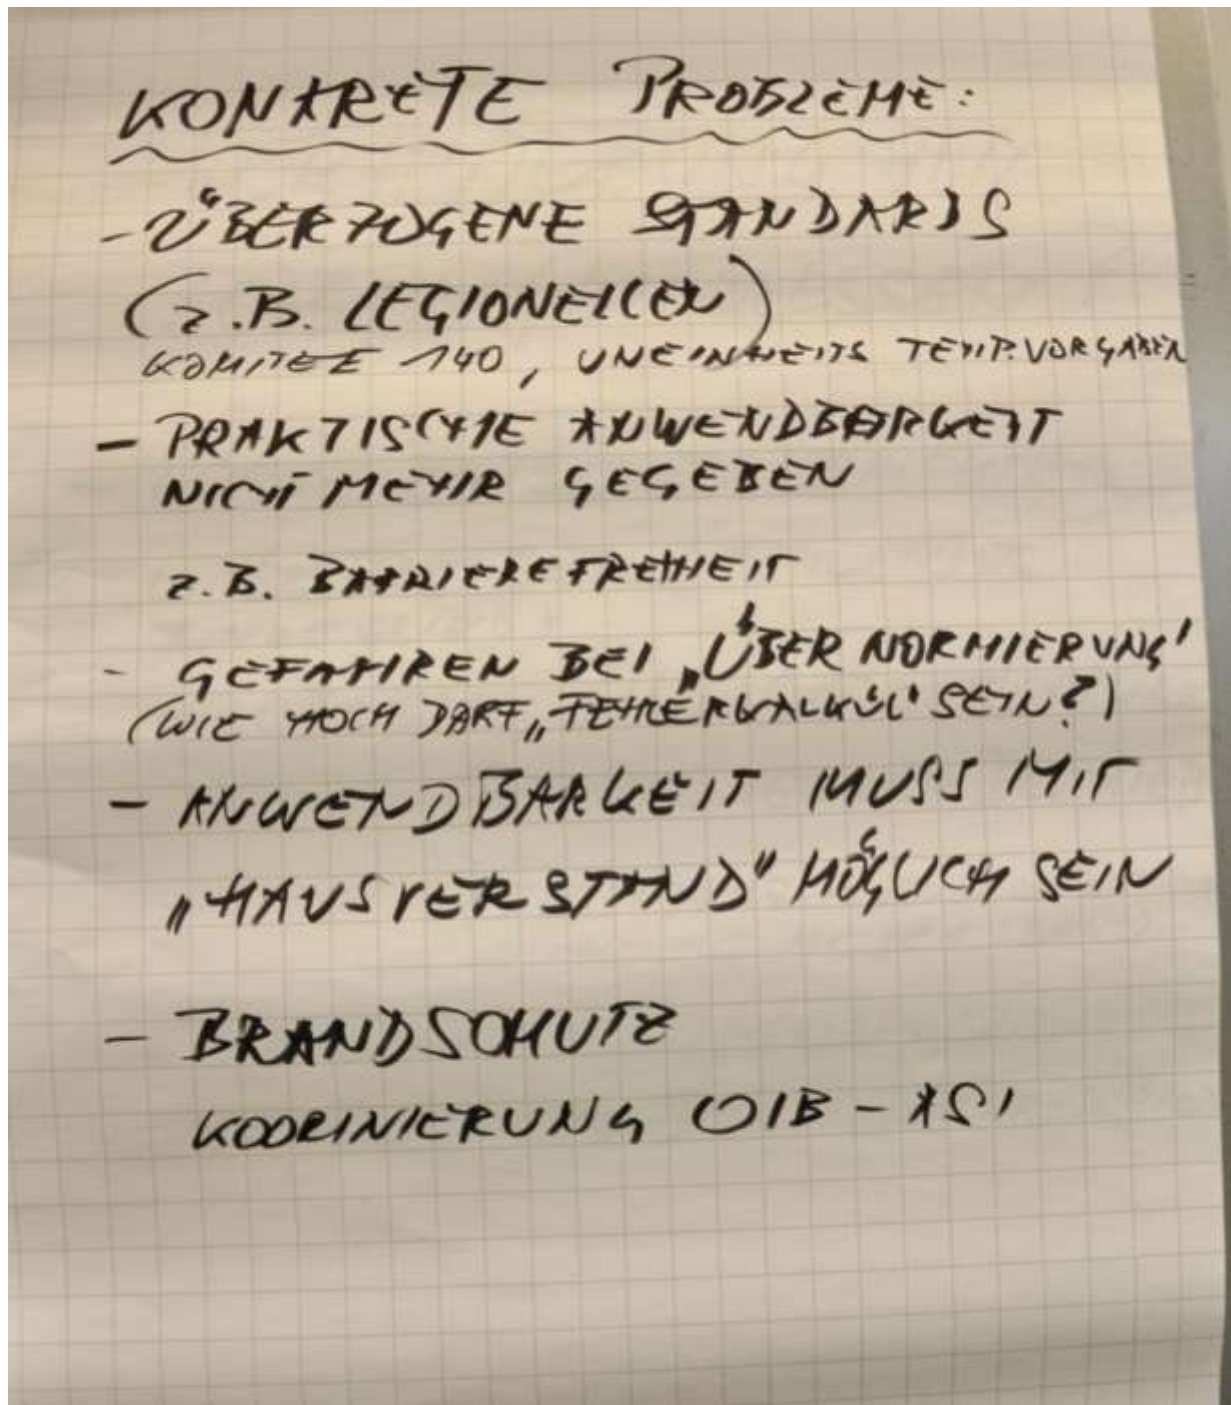 KONKRETE PROBLEME:
- ÜBERZOGENE STANDARDS
(z.B. LEGIONELLEN)
KOMITEE 140, UNEINHEITS TEMP. VORGABEN
- PRAKTISCHE ANWENDBARKEIT
NICHT MEHR GEGEBEN
z.B. BARRIEREFREIHEIT
- GEFAHREN BEI „ÜBERNORMIERUNG"
(WIE HOCH DARF „FEHLERKALKÜL" SEIN?)
- ANWENDBARKEIT MUSS MIT
„HAUSVERSTAND" MÖGLICH SEIN
- BRANDSCHUTZ
KOORINIERUNG OIB - ASI